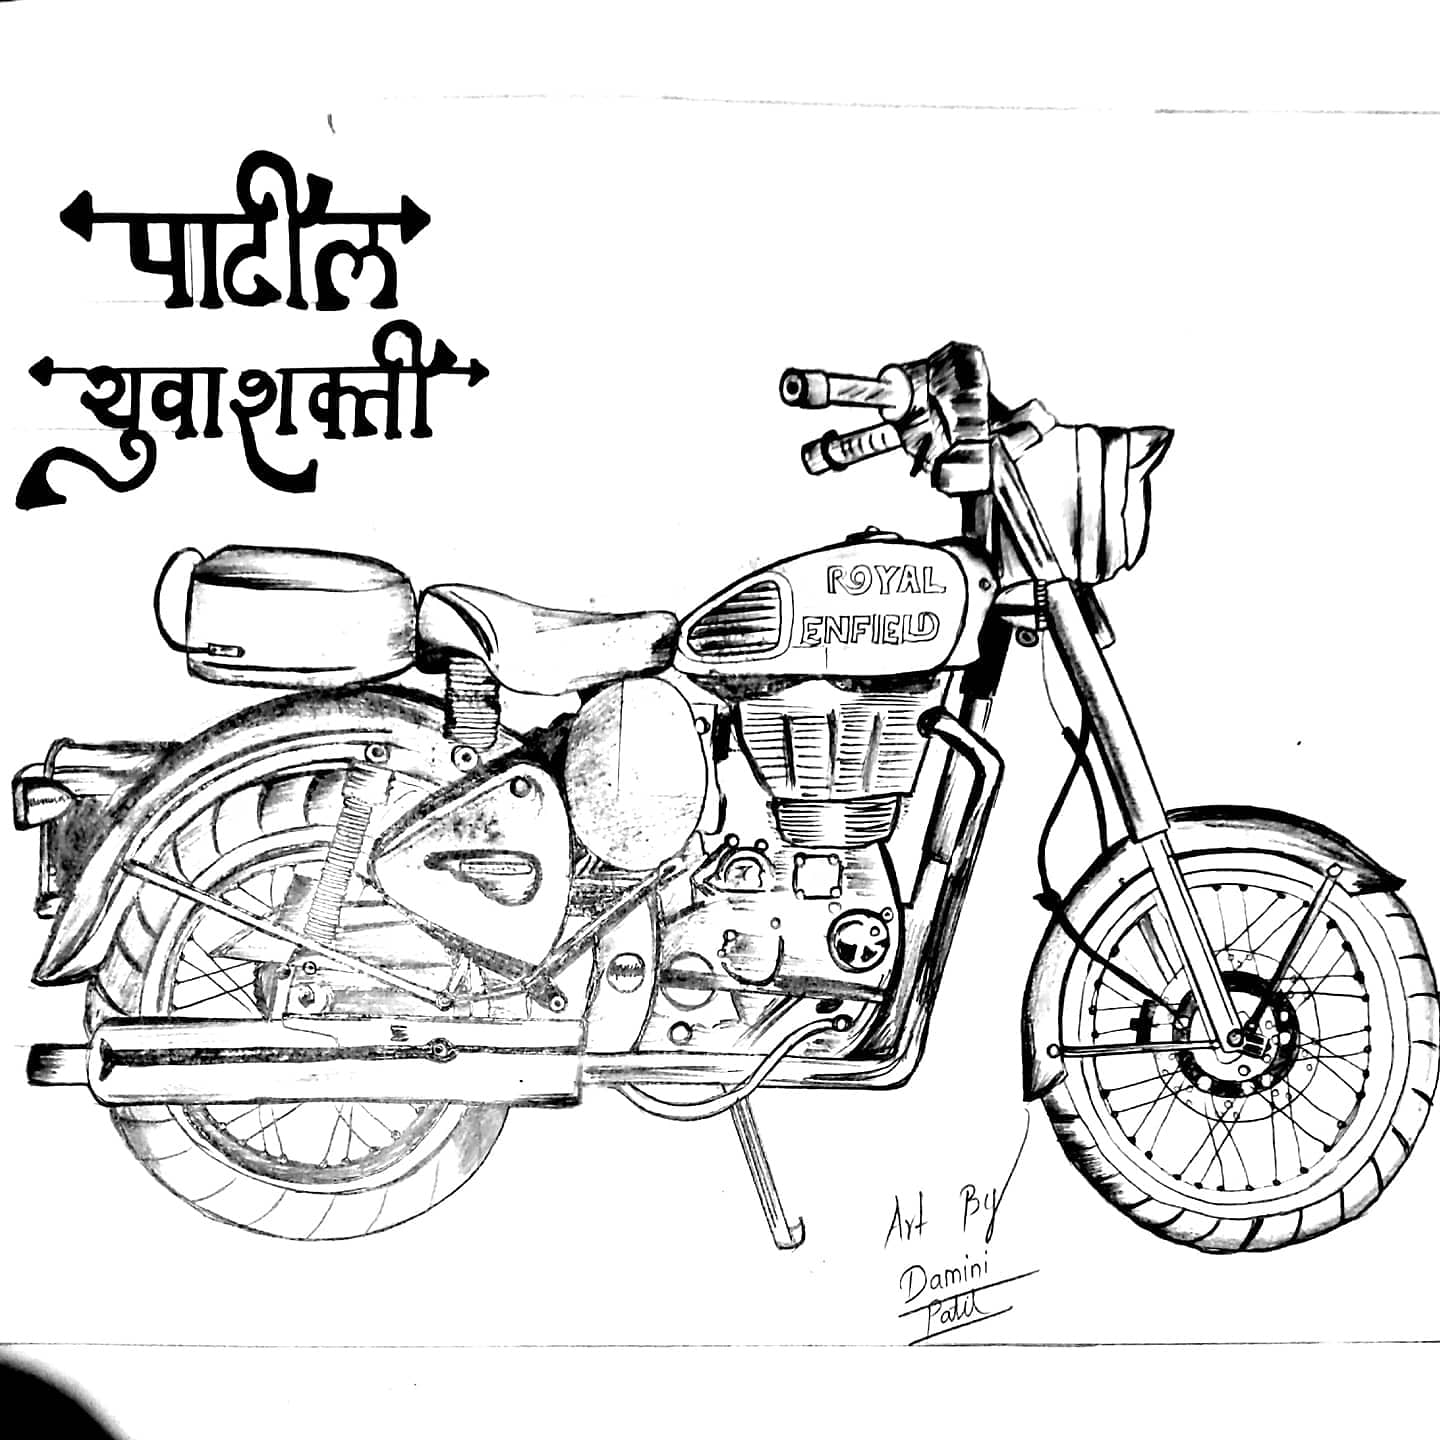 पाटील
युवाशक्ती
ROYAL
ENFIELD
Art By
Damini
Patil